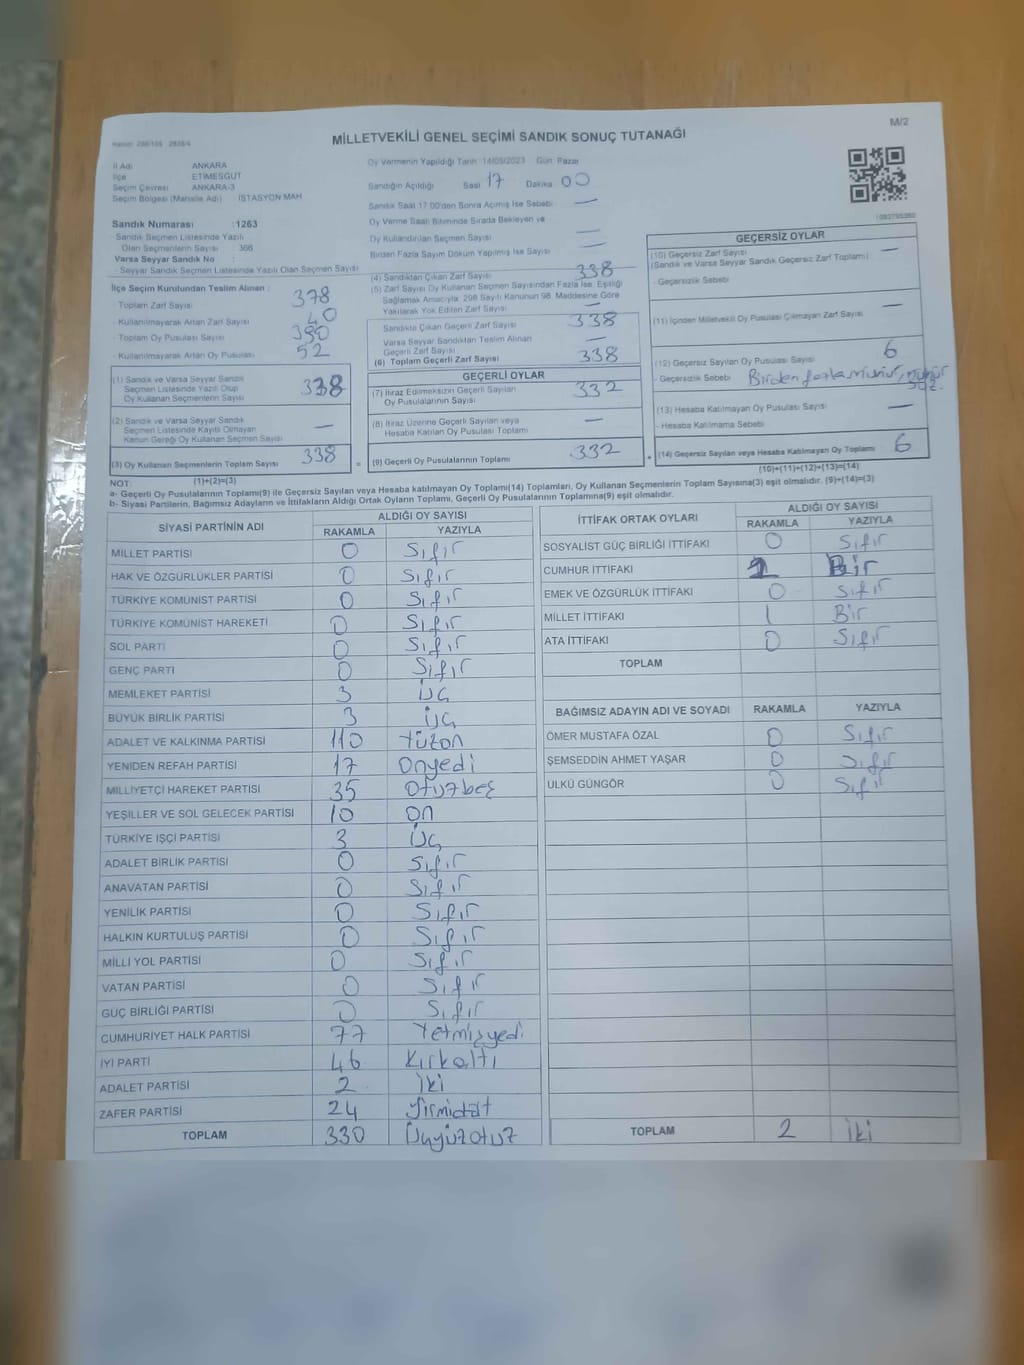 M/2
MİLLETVEKİLİ GENEL SEÇİMİ SANDIK SONUÇ TUTANAĞI
İl Adı ANKARA
İlçe ETİMESGUT
Seçim Çevresi ANKARA-3
Seçim Bölgesi (Mahalle Adı) İSTASYON MAH
Sandık Numarası :1263
Sandık Seçmen Listesinde Yazılı
Olan Seçmenlerin Sayısı : 366
Varsa Seyyar Sandık No :
- Seyyar Sandık Seçmen Listesinde Yazılı Olan Seçmen Sayısı
İlçe Seçim Kurulundan Teslim Alınan :
- Toplam Zarf Sayısı 378
- Kullanılmayarak Artan Zarf Sayısı 40
- Toplam Oy Pusulası Sayısı 390
- Kullanılmayarak Artan Oy Pusulası 52
(1) Sandık ve Varsa Seyyar Sandık
Seçmen Listesinde Yazılı Olup
Oy Kullanan Seçmenlerin Sayısı 338
(2) Sandık ve Varsa Seyyar Sandık
Seçmen Listesinde Kayıtlı Olmayan
Kanun Gereği Oy Kullanan Seçmen Sayısı —
(3) Oy Kullanan Seçmenlerin Toplam Sayısı 338
(1)+(2)=(3)
Oy Vermenin Yapıldığı Tarih :14/05/2023 Gün: Pazar
Sandığın Açıldığı Saat 17 Dakika 00
Sandık Saat 17:00'den Sonra Açılmış İse Sebebi —
Oy Verme Saati Bitiminde Sırada Bekleyen ve
Oy Kullandırılan Seçmen Sayısı —
Birden Fazla Sayım Döküm Yapılmış İse Sayısı —
(4) Sandıktan Çıkan Zarf Sayısı 338
(5) Zarf Sayısı Oy Kullanan Seçmenlerden Fazla İse, Eşitliği
Sağlamak Amacıyla, 298 Sayılı Kanunun 98. Maddesine Göre
Yakılarak Yok Edilen Zarf Sayısı —
Sandıkta Çıkan Geçerli Zarf Sayısı 338
Varsa Seyyar Sandıktan Teslim Alınan
Geçerli Zarf Sayısı —
(6) Toplam Geçerli Zarf Sayısı 338
GEÇERLİ OYLAR
(7) İtiraz Edilmeksizin Geçerli Sayılan
Oy Pusulalarının Sayısı 332
(8) İtiraz Üzerine Geçerli Sayılan veya
Hesaba Katılan Oy Pusulası Toplamı —
= (9) Geçerli Oy Pusulalarının Toplamı 332
GEÇERSİZ OYLAR
(10) Geçersiz Zarf Sayısı —
(Sandık ve Varsa Seyyar Sandık Geçersiz Zarf Toplamı)
- Geçersizlik Sebebi
(11) İçinden Milletvekili Oy Pusulası Çıkmayan Zarf Sayısı —
(12) Geçersiz Sayılan Oy Pusulası Sayısı 6
- Geçersizlik Sebebi Birden fazla mühür, mühür
(13) Hesaba Katılmayan Oy Pusulası Sayısı —
- Hesaba Katılmama Sebebi
+ (14) Geçersiz Sayılan veya Hesaba Katılmayan Oy Toplamı 6
(10)+(11)+(12)+(13)=(14)
NOT:
a- Geçerli Oy Pusulalarının Toplamı(9) ile Geçersiz Sayılan veya Hesaba katılmayan Oy Toplamı(14) Toplamları, Oy Kullanan Seçmenlerin Toplam Sayısına(3) eşit olmalıdır. (9)+(14)=(3)
b- Siyasi Partilerin, Bağımsız Adayların ve İttifakların Aldığı Ortak Oyların Toplamı, Geçerli Oy Pusulalarının Toplamına(9) eşit olmalıdır.
SİYASİ PARTİNİN ADI ALDIĞI OY SAYISI
RAKAMLA YAZIYLA
MİLLET PARTİSİ 0 Sıfır
HAK VE ÖZGÜRLÜKLER PARTİSİ 0 Sıfır
TÜRKİYE KOMÜNİST PARTİSİ 0 Sıfır
TÜRKİYE KOMÜNİST HAREKETİ 0 Sıfır
SOL PARTİ 0 Sıfır
GENÇ PARTİ 0 Sıfır
MEMLEKET PARTİSİ 3 Üç
BÜYÜK BİRLİK PARTİSİ 3 Üç
ADALET VE KALKINMA PARTİSİ 110 Yüzon
YENİDEN REFAH PARTİSİ 17 Onyedi
MİLLİYETÇİ HAREKET PARTİSİ 35 Otuzbeş
YEŞİLLER VE SOL GELECEK PARTİSİ 10 On
TÜRKİYE İŞÇİ PARTİSİ 3 Üç
ADALET BİRLİK PARTİSİ 0 Sıfır
ANAVATAN PARTİSİ 0 Sıfır
YENİLİK PARTİSİ 0 Sıfır
HALKIN KURTULUŞ PARTİSİ 0 Sıfır
MİLLİ YOL PARTİSİ 0 Sıfır
VATAN PARTİSİ 0 Sıfır
GÜÇ BİRLİĞİ PARTİSİ 0 Sıfır
CUMHURİYET HALK PARTİSİ 77 Yetmişyedi
İYİ PARTİ 46 Kırkaltı
ADALET PARTİSİ 2 İki
ZAFER PARTİSİ 24 Yirmidört
TOPLAM 330 Üçyüzotuz
İTTİFAK ORTAK OYLARI ALDIĞI OY SAYISI
RAKAMLA YAZIYLA
SOSYALİST GÜÇ BİRLİĞİ İTTİFAKI 0 Sıfır
CUMHUR İTTİFAKI 1 Bir
EMEK VE ÖZGÜRLÜK İTTİFAKI 0 Sıfır
MİLLET İTTİFAKI 1 Bir
ATA İTTİFAKI 0 Sıfır
TOPLAM
BAĞIMSIZ ADAYIN ADI VE SOYADI RAKAMLA YAZIYLA
ÖMER MUSTAFA ÖZAL 0 Sıfır
ŞEMSEDDİN AHMET YAŞAR 0 Sıfır
ÜLKÜ GÜNGÖR 0 Sıfır
TOPLAM 2 İki